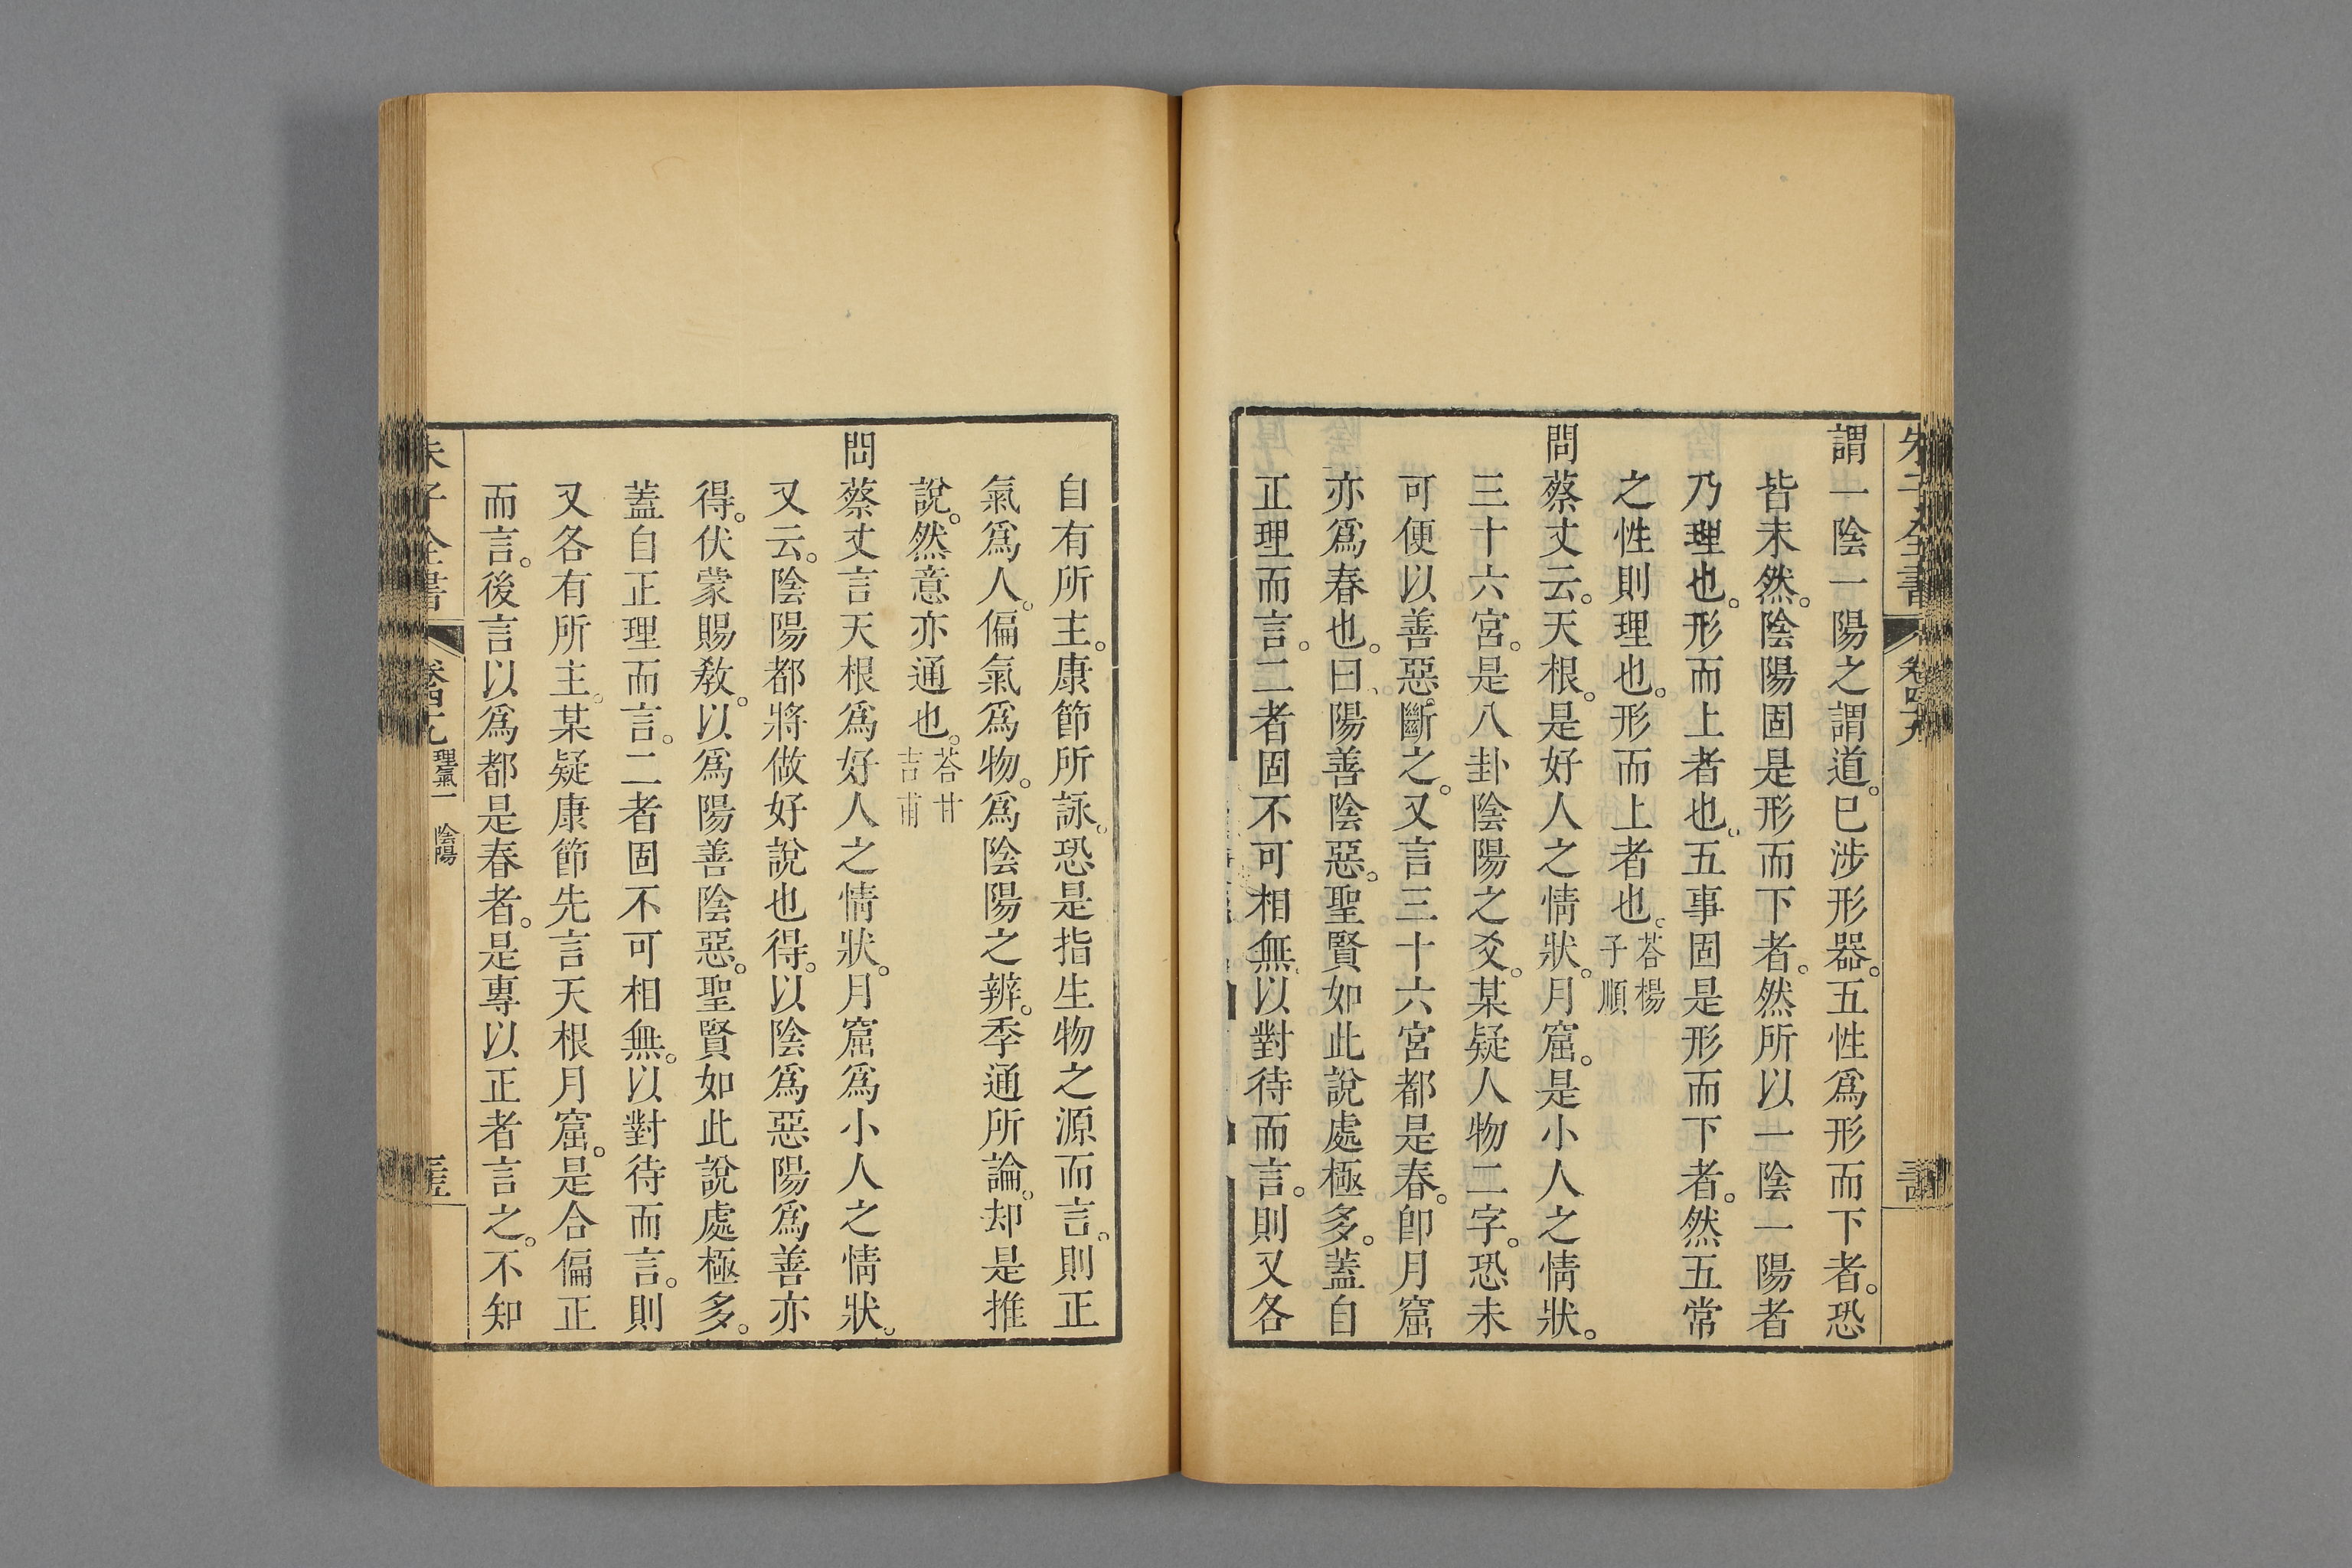 謂一陰一陽之謂道。已涉形器。五性爲形而下者。恐
皆未然。陰陽固是形而下者。然所以一陰一陽者
乃理也。形而上者也。五事固是形而下者。然五常
之性則理也。形而上者也。荅楊子順
問蔡丈云。天根。是好人之情狀。月窟。是小人之情狀。
三十六宮。是八卦陰陽之爻。某疑人物二字。恐未
可便以善惡斷之。又言三十六宮都是春。卽月窟
亦爲春也。曰、陽善陰惡。聖賢如此說處極多。蓋自
正理而言。二者固不可相無。以對待而言。則又各
自有所主。康節所詠。恐是指生物之源而言。則正
氣爲人。偏氣爲物。爲陰陽之辨。季通所論。却是推
說。然意亦通也。荅甘吉甫
問蔡丈言天根爲好人之情狀。月窟爲小人之情狀。
又云。陰陽都將做好說也得。以陰爲惡陽爲善亦
得。伏蒙賜教。以爲陽善陰惡。聖賢如此說處極多。
蓋自正理而言。二者固不可相無。以對待而言。則
又各有所主。某疑康節先言天根月窟。是合偏正
而言。後言以爲都是春者。是專以正者言之。不知
朱子全書
卷四十九
理氣一 陰陽